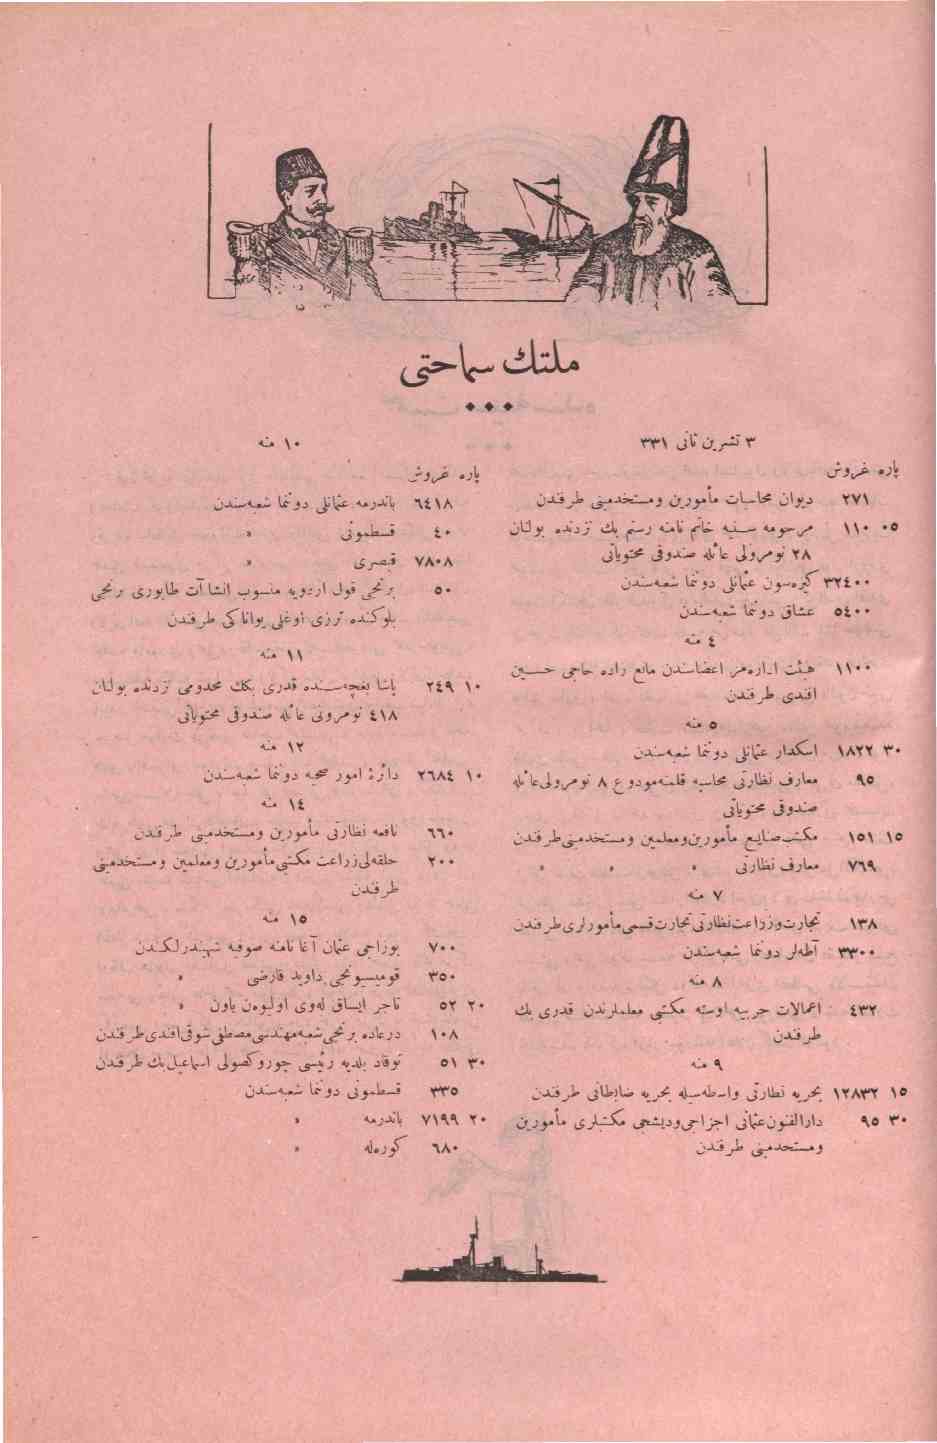 ملتك سماحتی
٣ تشرین ثانی ٣٣١
پاره غروش
٢٧١ دیوان محاسبات مأمورین ومستخدمینی طرفندن
٠٥ ١١٠ مرحومه سنیه خانم نامنه رستم بك نزدنده بولنان
٢٨ نومرولی عائله صندوقی محتویاتی
٣٢٤٠٠ كیره‌سون عثمانلی دوننما شعبه‌سندن
٥٤٠٠ عشاق دوننما شعبه‌سندن
٤ منه
١١٠٠ هیئت اداره‌مز اعضاسندن مانع زاده حاجی حسین
افندی طرفندن
٥ منه
٣٠ ١٨٢٢ اسكدار عثمانلی دوننما شعبه‌سندن
٩٥ معارف نظارتی محاسبه قلمنه مودوع ٨ نومرولی عائله
صندوقی محتویاتی
١٥ ١٥١ مكتب صنایع مأمورین ومعلمین ومستخدمینی طرفندن
٧٦٩ معارف نظارتی » » »
٧ منه
١٣٨ تجارت وزراعت نظارتی تجارت قسمی مأمورلری طرفندن
٣٣٠٠ آطه‌لر دوننما شعبه‌سندن
٨ منه
٤٣٢ اعمالات حربیه اوسته مكتبی معلملرندن قدری بك
طرفندن
٩ منه
١٥ ١٢٨٣٢ بحریه نظارتی واسطه‌سیله بحریه ضابطانی طرفندن
٣٠ ٩٥ دارالفنون عثمانی اجزاجی ودیشجی مكتبلری مأمورین
ومستخدمینی طرفندن
١٠ منه
پاره غروش
٦٤١٨ باندرمه عثمانلی دوننما شعبه‌سندن
٤٠ قسطمونی »
٧٨٠٨ قیصری »
٥٠ برنجی قول اردویه منسوب انشاآت طابوری برنجی
بلوكنده ترزی اوغلی یواناكی طرفندن
١١ منه
١٠ ٢٤٩ پاشا بغچه‌سنده قدری بكك مخدومی نزدنده بولنان
٤١٨ نومرولی عائله صندوقی محتویاتی
١٢ منه
١٠ ٢٦٨٤ دائرۀ امور صحیه دوننما شعبه‌سندن
١٤ منه
٦٦٠ نافعه نظارتی مأمورین ومستخدمینی طرفندن
٢٠٠ حلقه‌لی زراعت مكتبی مأمورین ومعلمین ومستخدمینی
طرفندن
١٥ منه
٧٠٠ بوزاجی عثمان آغا نامنه صوفیه شهبندرلكندن
٣٥٠ قومیسیونجی داوید قارضی »
٢٠ ٥٢ تاجر ایساق له‌وی اولیوه‌ن باون »
١٠٨ درعاده برنجی شعبه مهندسی مصطفی شوقی افندی طرفندن
٣٠ ٥١ توقاد بلدیه رئیسی جوروكصولی اسماعیل بك طرفندن
٣٣٥ قسطمونی دوننما شعبه‌سندن
٢٠ ٧١٩٩ باندرمه »
٦٨٠ كوره‌له »